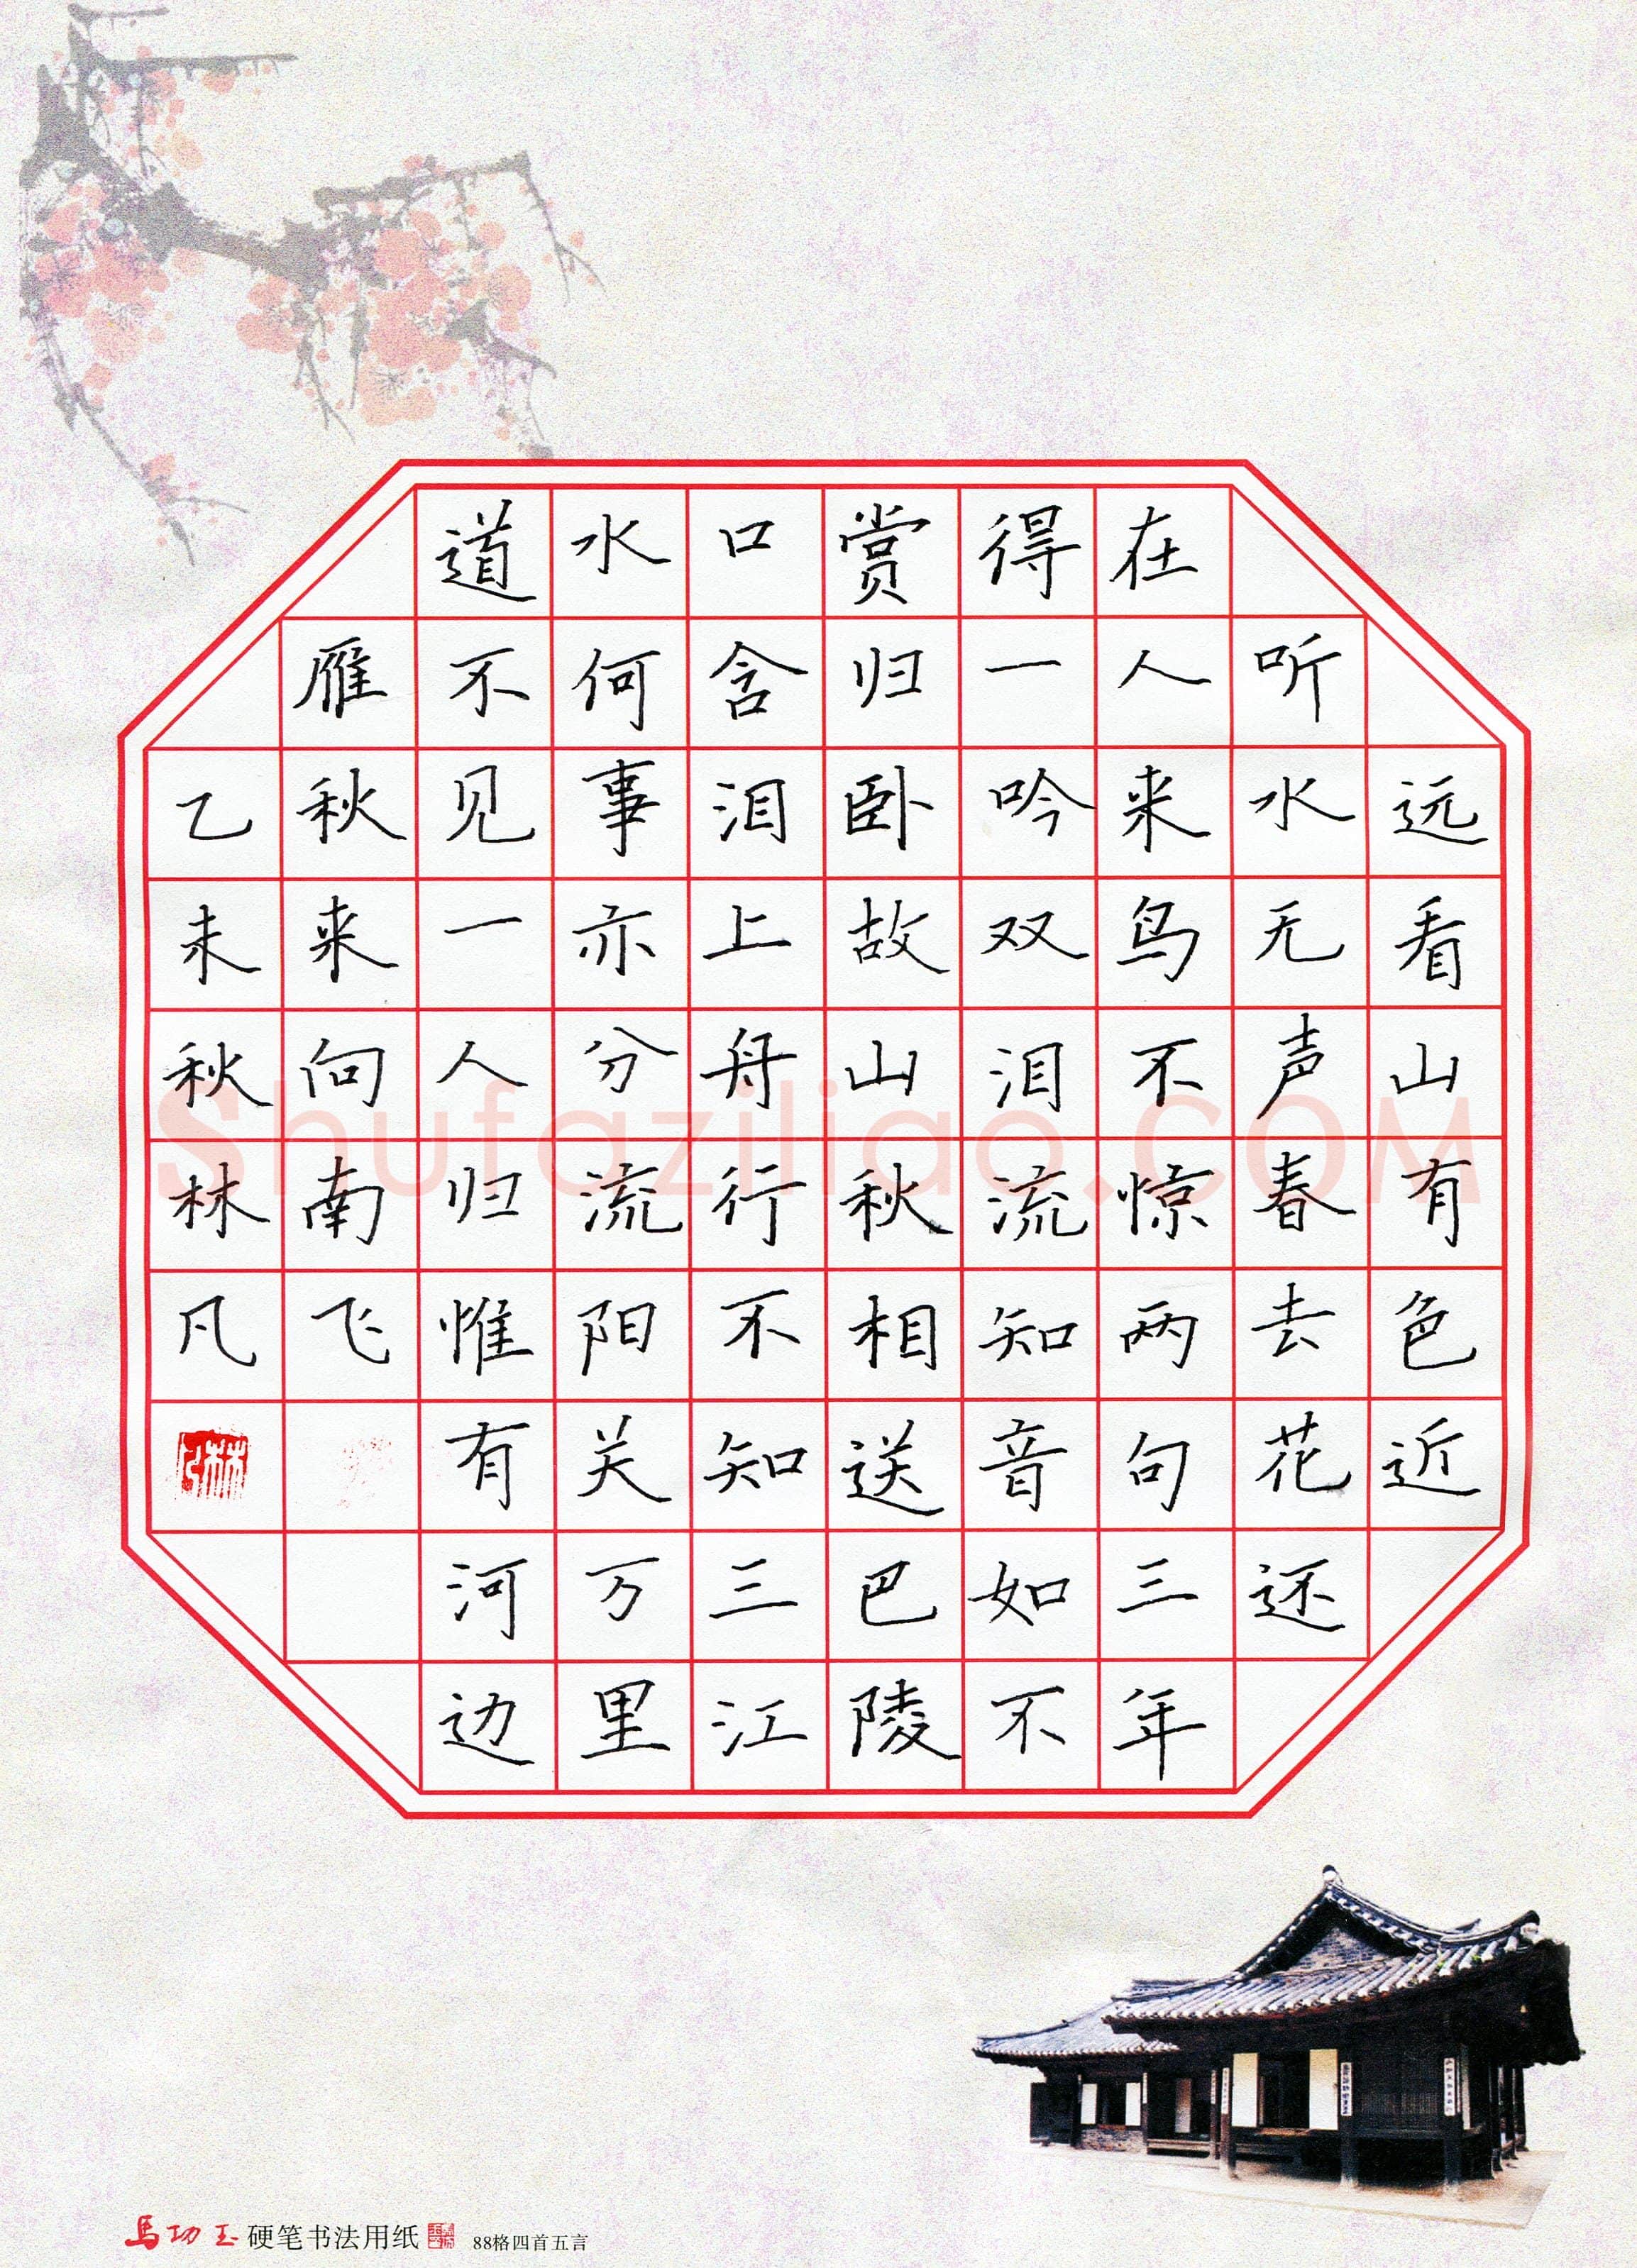 远看山有色近
听水无声春去花还
在人来鸟不惊两句三年
得一吟双泪流知音如不
赏归卧故山秋相送巴陵
口含泪上舟行不知三江
水何事亦分流阳关万里
道不见一人归惟有河边
雁秋来向南飞
乙未秋林凡
Shufaziliao.COM
硬笔书法用纸 88格四首五言